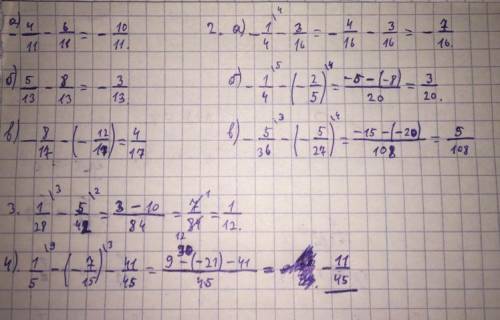 а) 4/11 - 6/11 = - 10/11.
б) 5/13 - 8/13 = - 3/13.
в) - 8/17 - (- 12/17) = 4/17
2. а) - 1/4 \4 - 3/16 = - 4/16 - 3/16 = - 7/16.
б) - 1/4 \5 - (- 2/5) \4 = -5-(-8)/20 = 3/20.
в) - 5/36 \3 - (- 5/27) \4 = -15-(-20)/108 = 5/108
3. 1/28 \3 - 5/42 \2 = 3-10/84 = 7/84 = 1/12.
4) 1/5 \9 - (- 7/15) \3 - 41/45 = 9-(-21)-41/45 = - 11/45